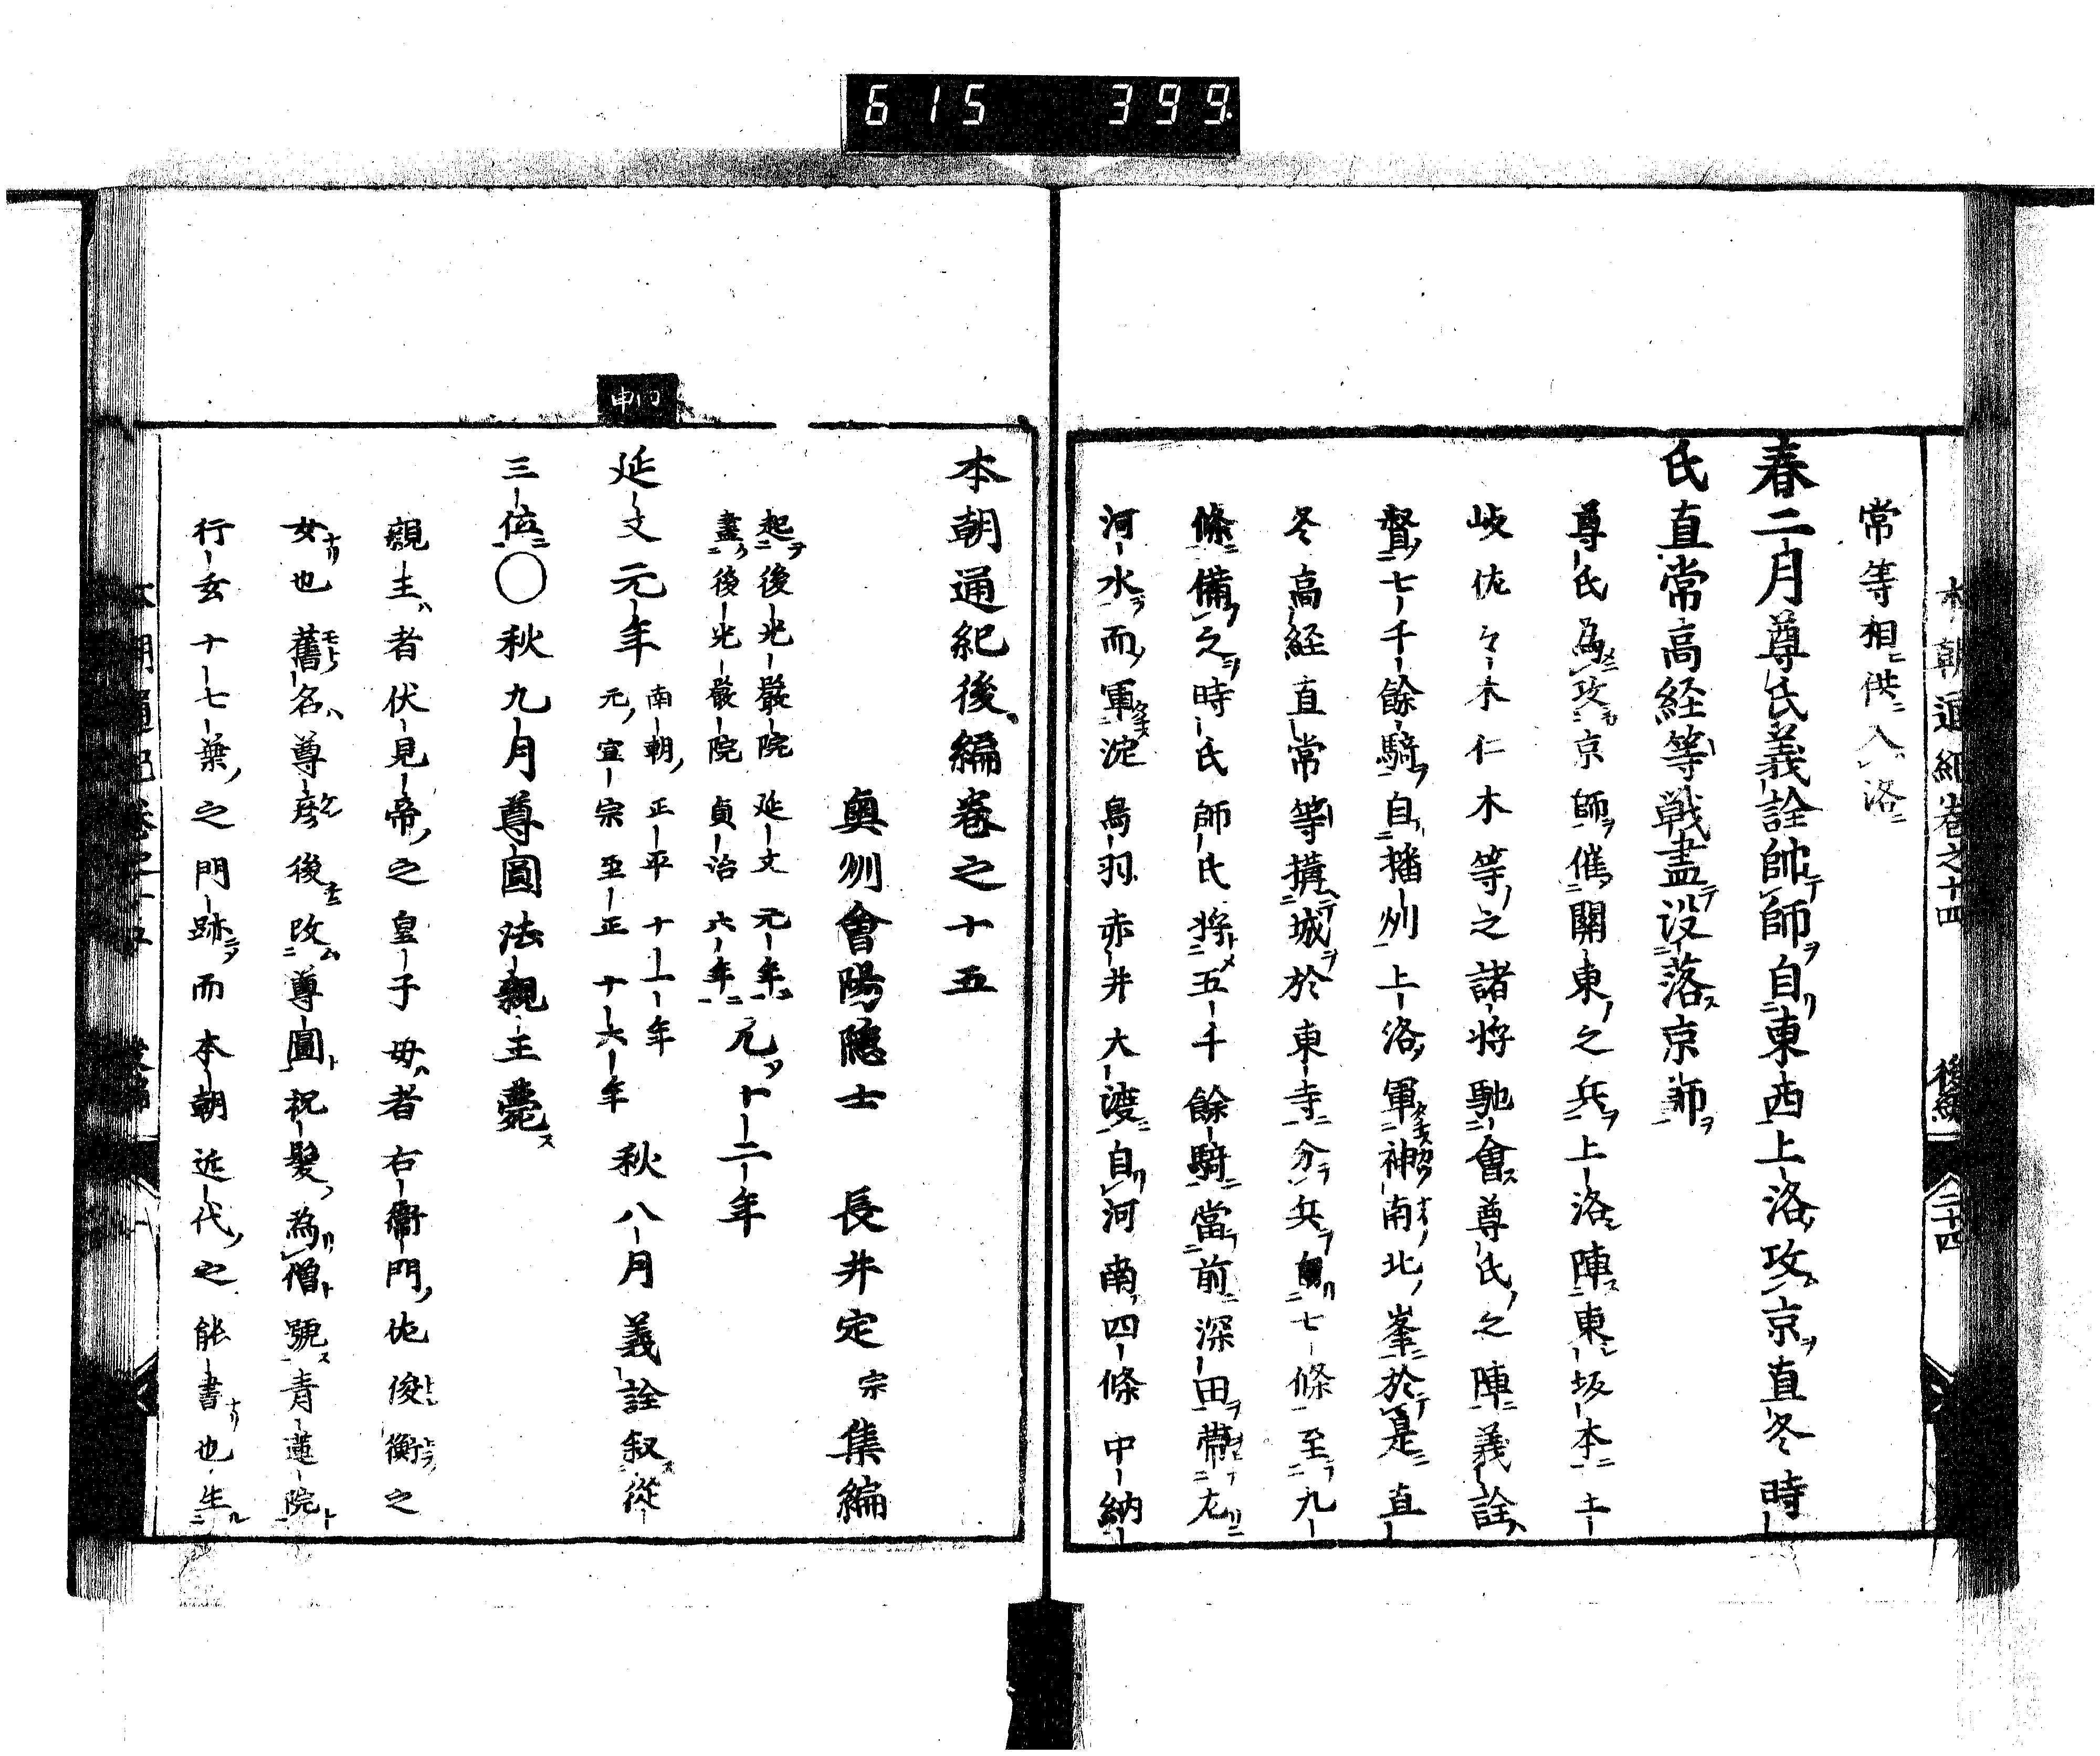 615 399
本朝通紀卷之十四 後編 二十四
常等相供入洛
春二月尊氏義詮帥師自東西上洛攻京直冬時
氏直常高経等戦盡没落京師
尊氏為攻京師催關東之兵上洛陣東坂本土
岐佐々木仁木等之諸将馳會尊氏之陣義詮
督七千餘騎自播州上洛軍神南北峯於是直
冬高経直常等搆城於東寺分兵自七條至九
條備之時氏師氏将五千餘騎當前深田帶左
河水而軍淀鳥羽赤井大渡自河南四條中納
本朝通紀後編卷之十五
奥州會陽隠士 長井定宗集編
起後光嚴院延文元年
盡後光嚴院貞治六年 凡十二年
丙申
延文元年 南朝正平十一年 元宣宗至正十六年 秋八月義詮叙從
三位○秋九月尊圓法親王薨
親王者伏見帝之皇子母者右衞門佐俊衡之
女也舊名尊彦後改尊圓祝髮為僧號青蓮院
行玄十七葉之門跡而本朝近代之能書也生